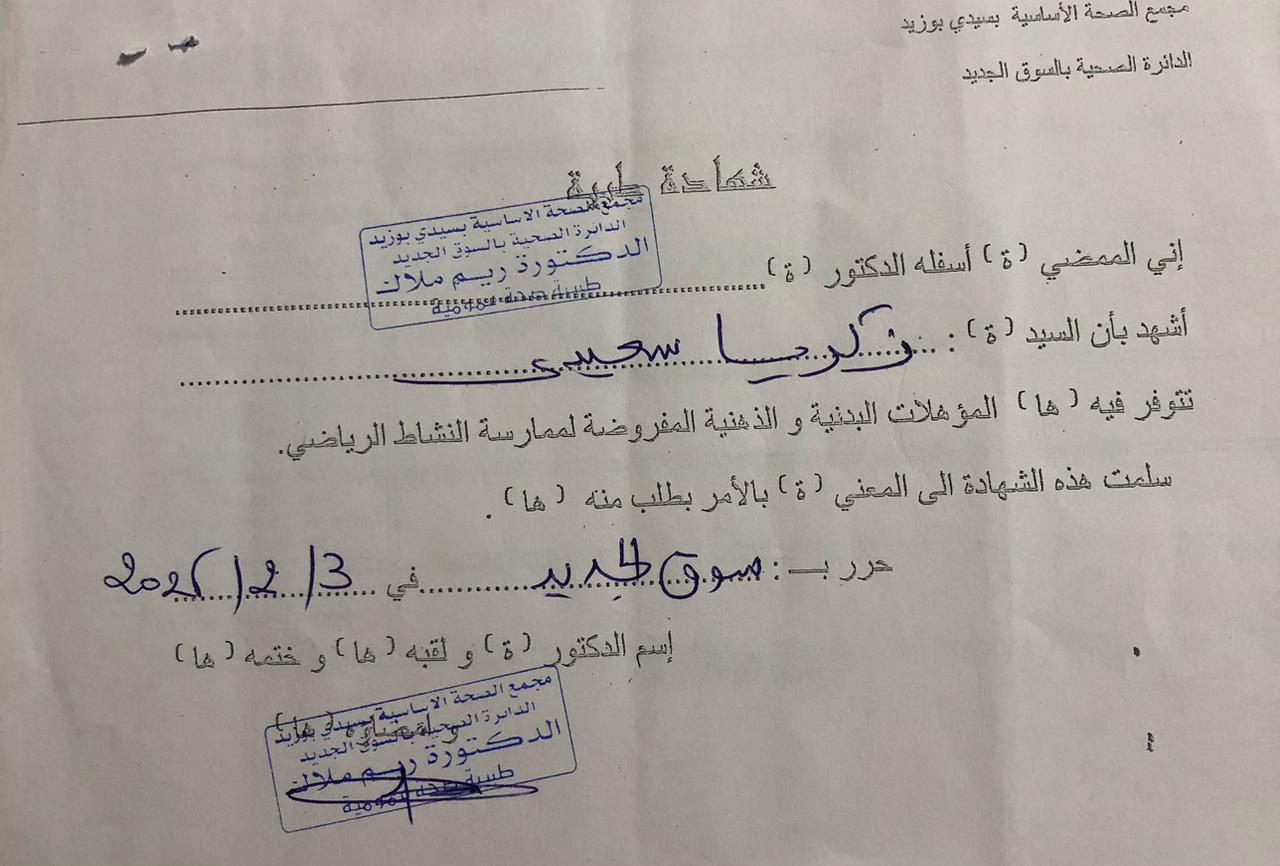 مجمع الصحة الأساسية بسيدي بوزيد
الدائرة الصحية بالسوق الجديد
شهادة طبية
مجمع الصحة الاساسية بسيدي بوزيد
الدائرة الصحية بالسوق الجديد
الدكتورة ريم ملاك
طبيبة صحة عمومية
إني الممضي (ة) أسفله الدكتور (ة)
أشهد بأن السيد (ة) : زكريا سعيدي
تتوفر فيه (ها) المؤهلات البدنية و الذهنية المفروضة لممارسة النشاط الرياضي.
سلمت هذه الشهادة الى المعني (ة) بالأمر بطلب منه (ها) .
حرر بـ : سوق الجديد في 3/2/2026
إسم الدكتور (ة) و لقبه (ها) و ختمه (ها)
و امضاؤه (ها)
مجمع الصحة الاساسية بسيدي بوزيد
الدائرة الصحية بالسوق الجديد
الدكتورة ريم ملاك
طبيبة صحة عمومية